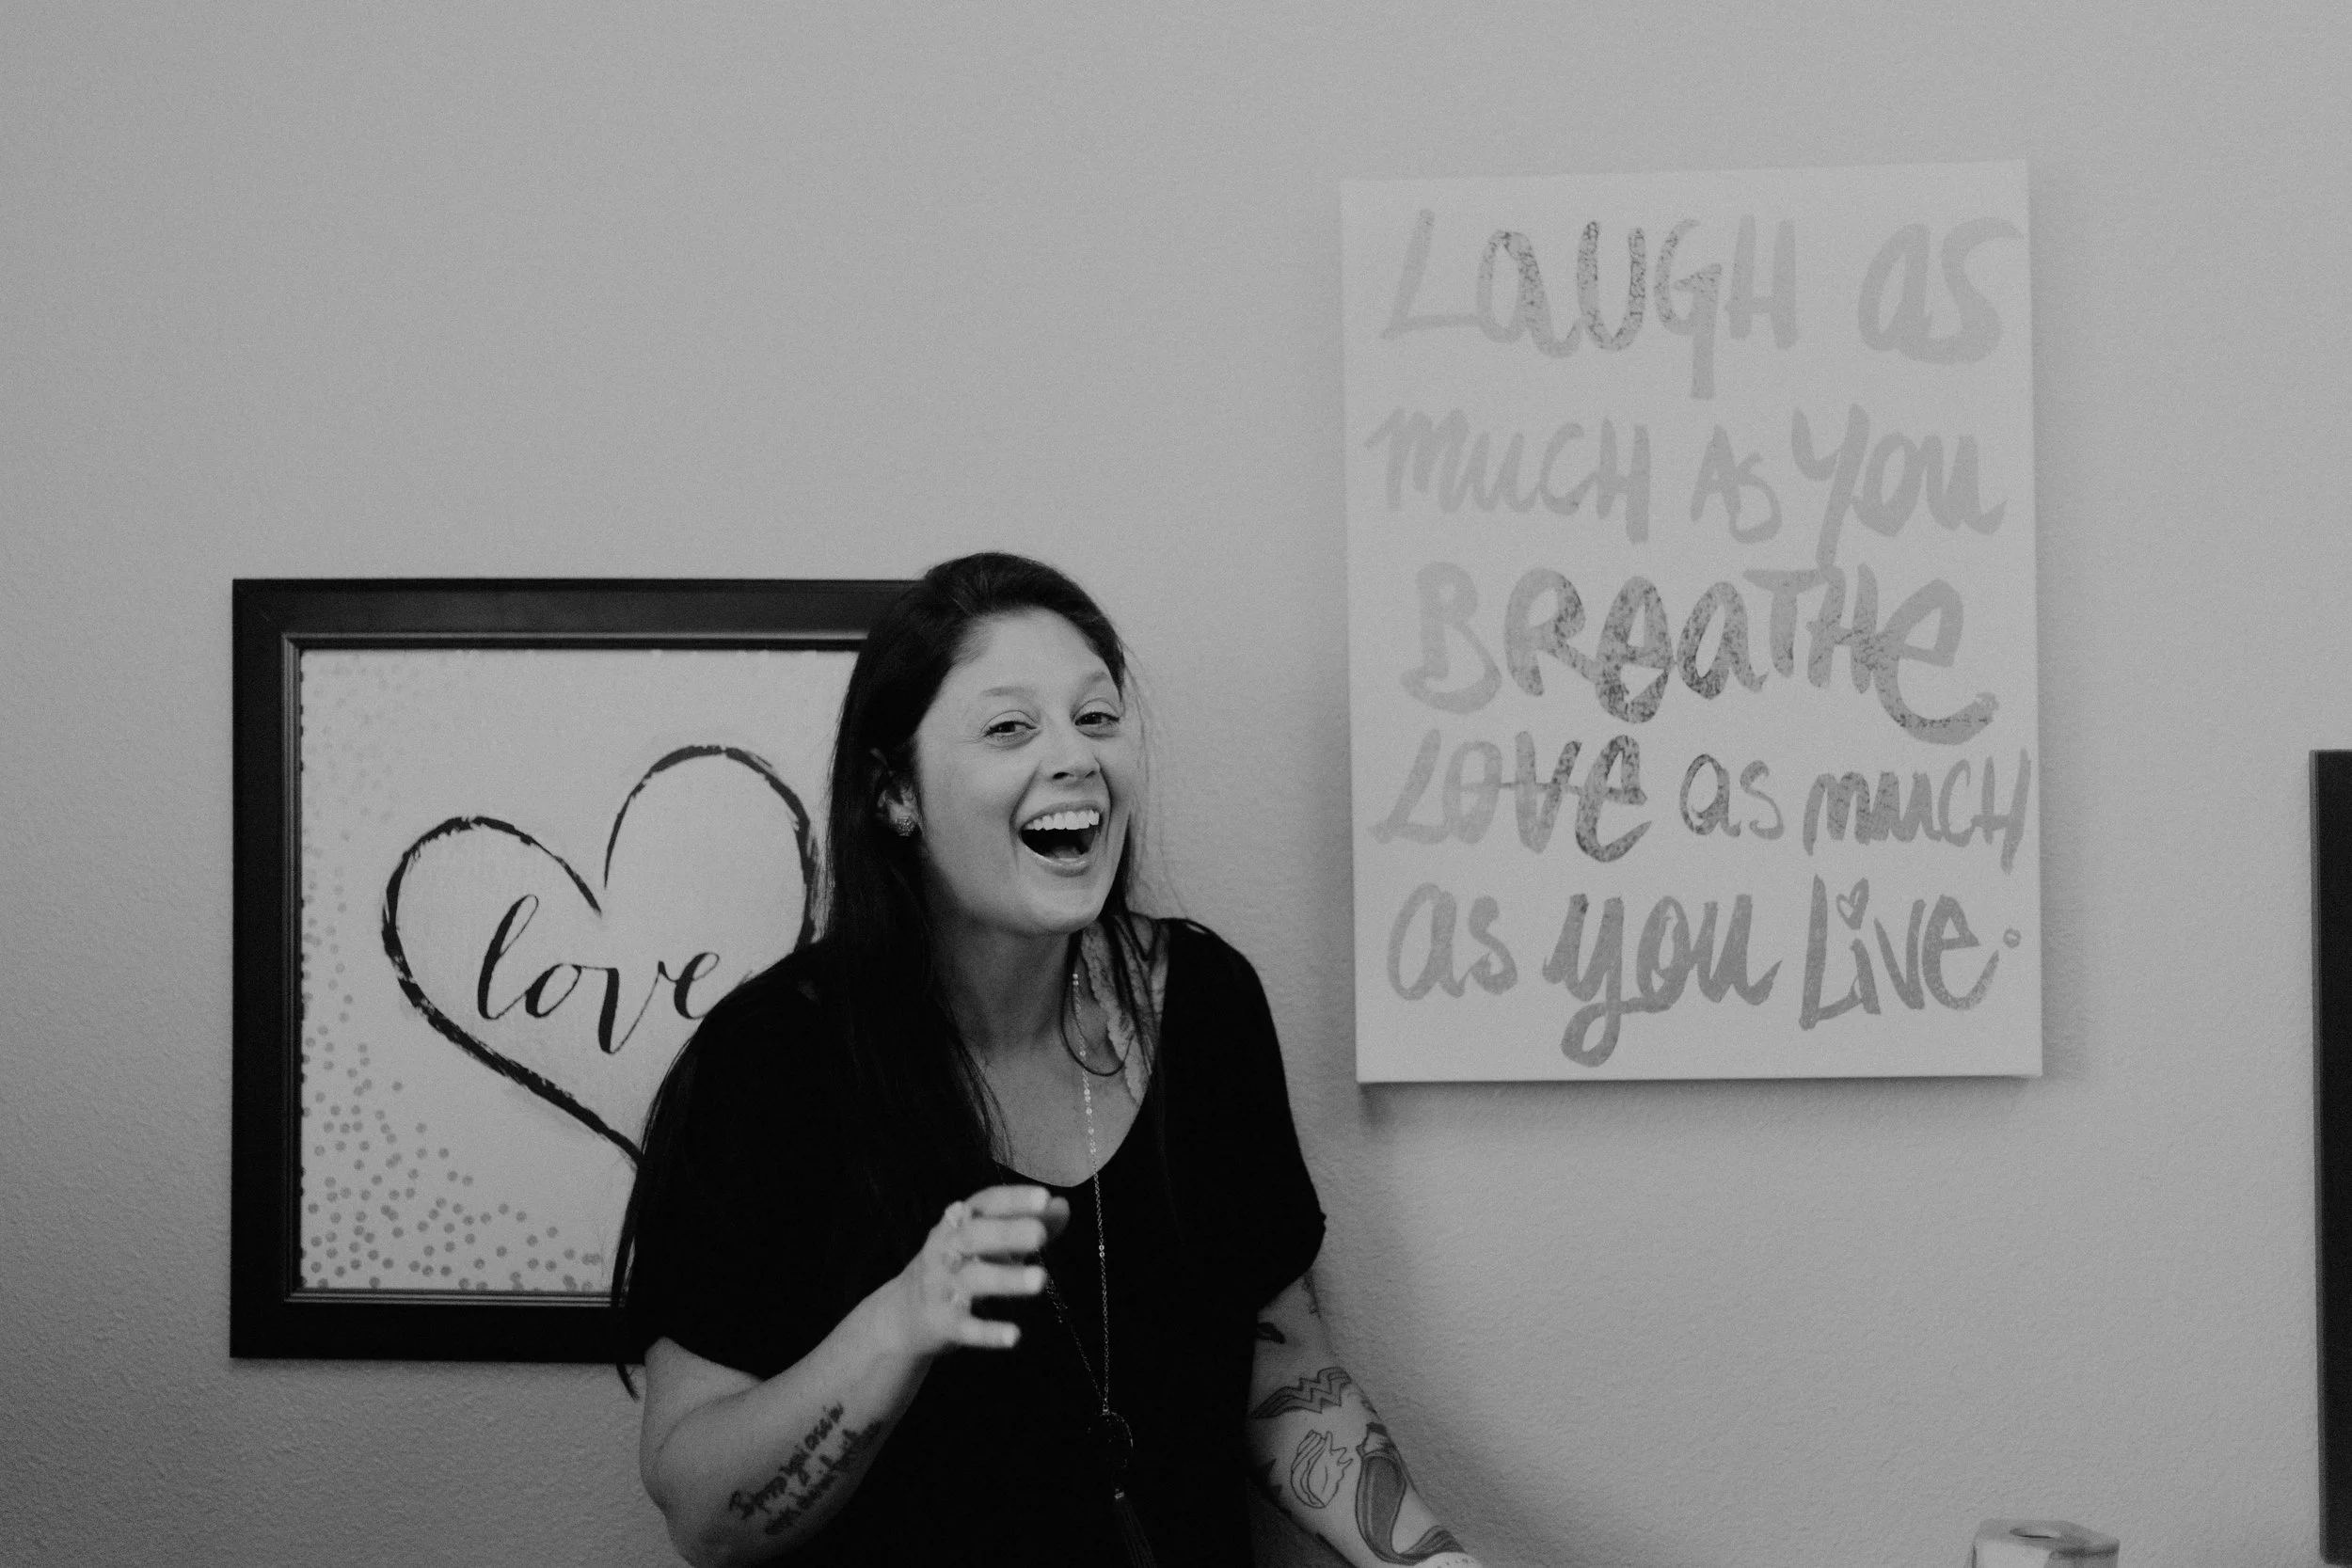 love
LaUGH as
mucH As You
BReaTHe
LOVe as mucH
as you Live.